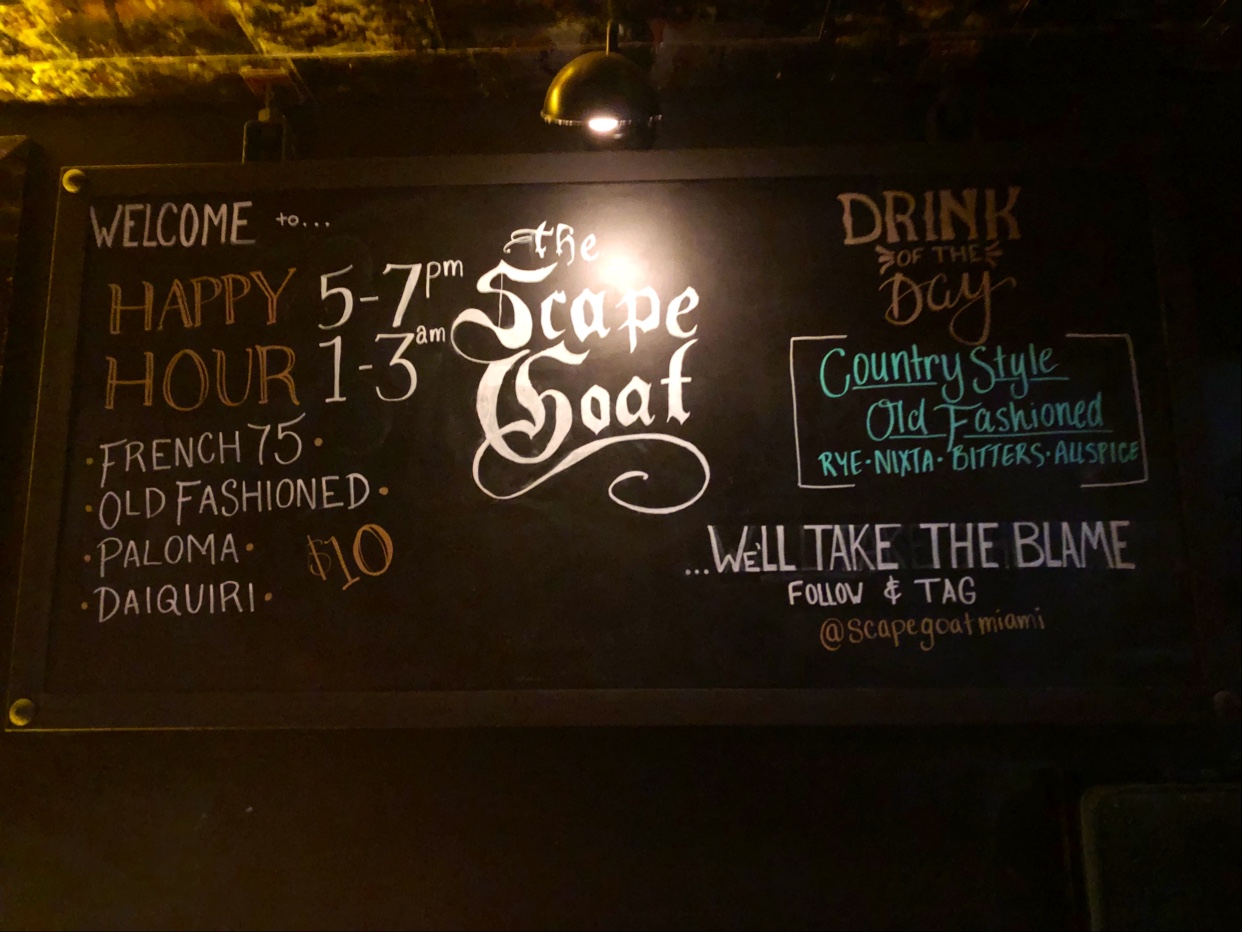 WELCOME to...
HAPPY 5-7pm
HOUR 1-3am
·FRENCH 75·
·OLD FASHIONED·
·PALOMA·
·DAIQUIRI·
$10
the
Scape
Goat
DRINK
OF THE
Day
Country Style
Old Fashioned
RYE·NIXTA·BITTERS·ALLSPICE
...WE'LL TAKE THE BLAME
FOLLOW & TAG
@scapegoatmiami